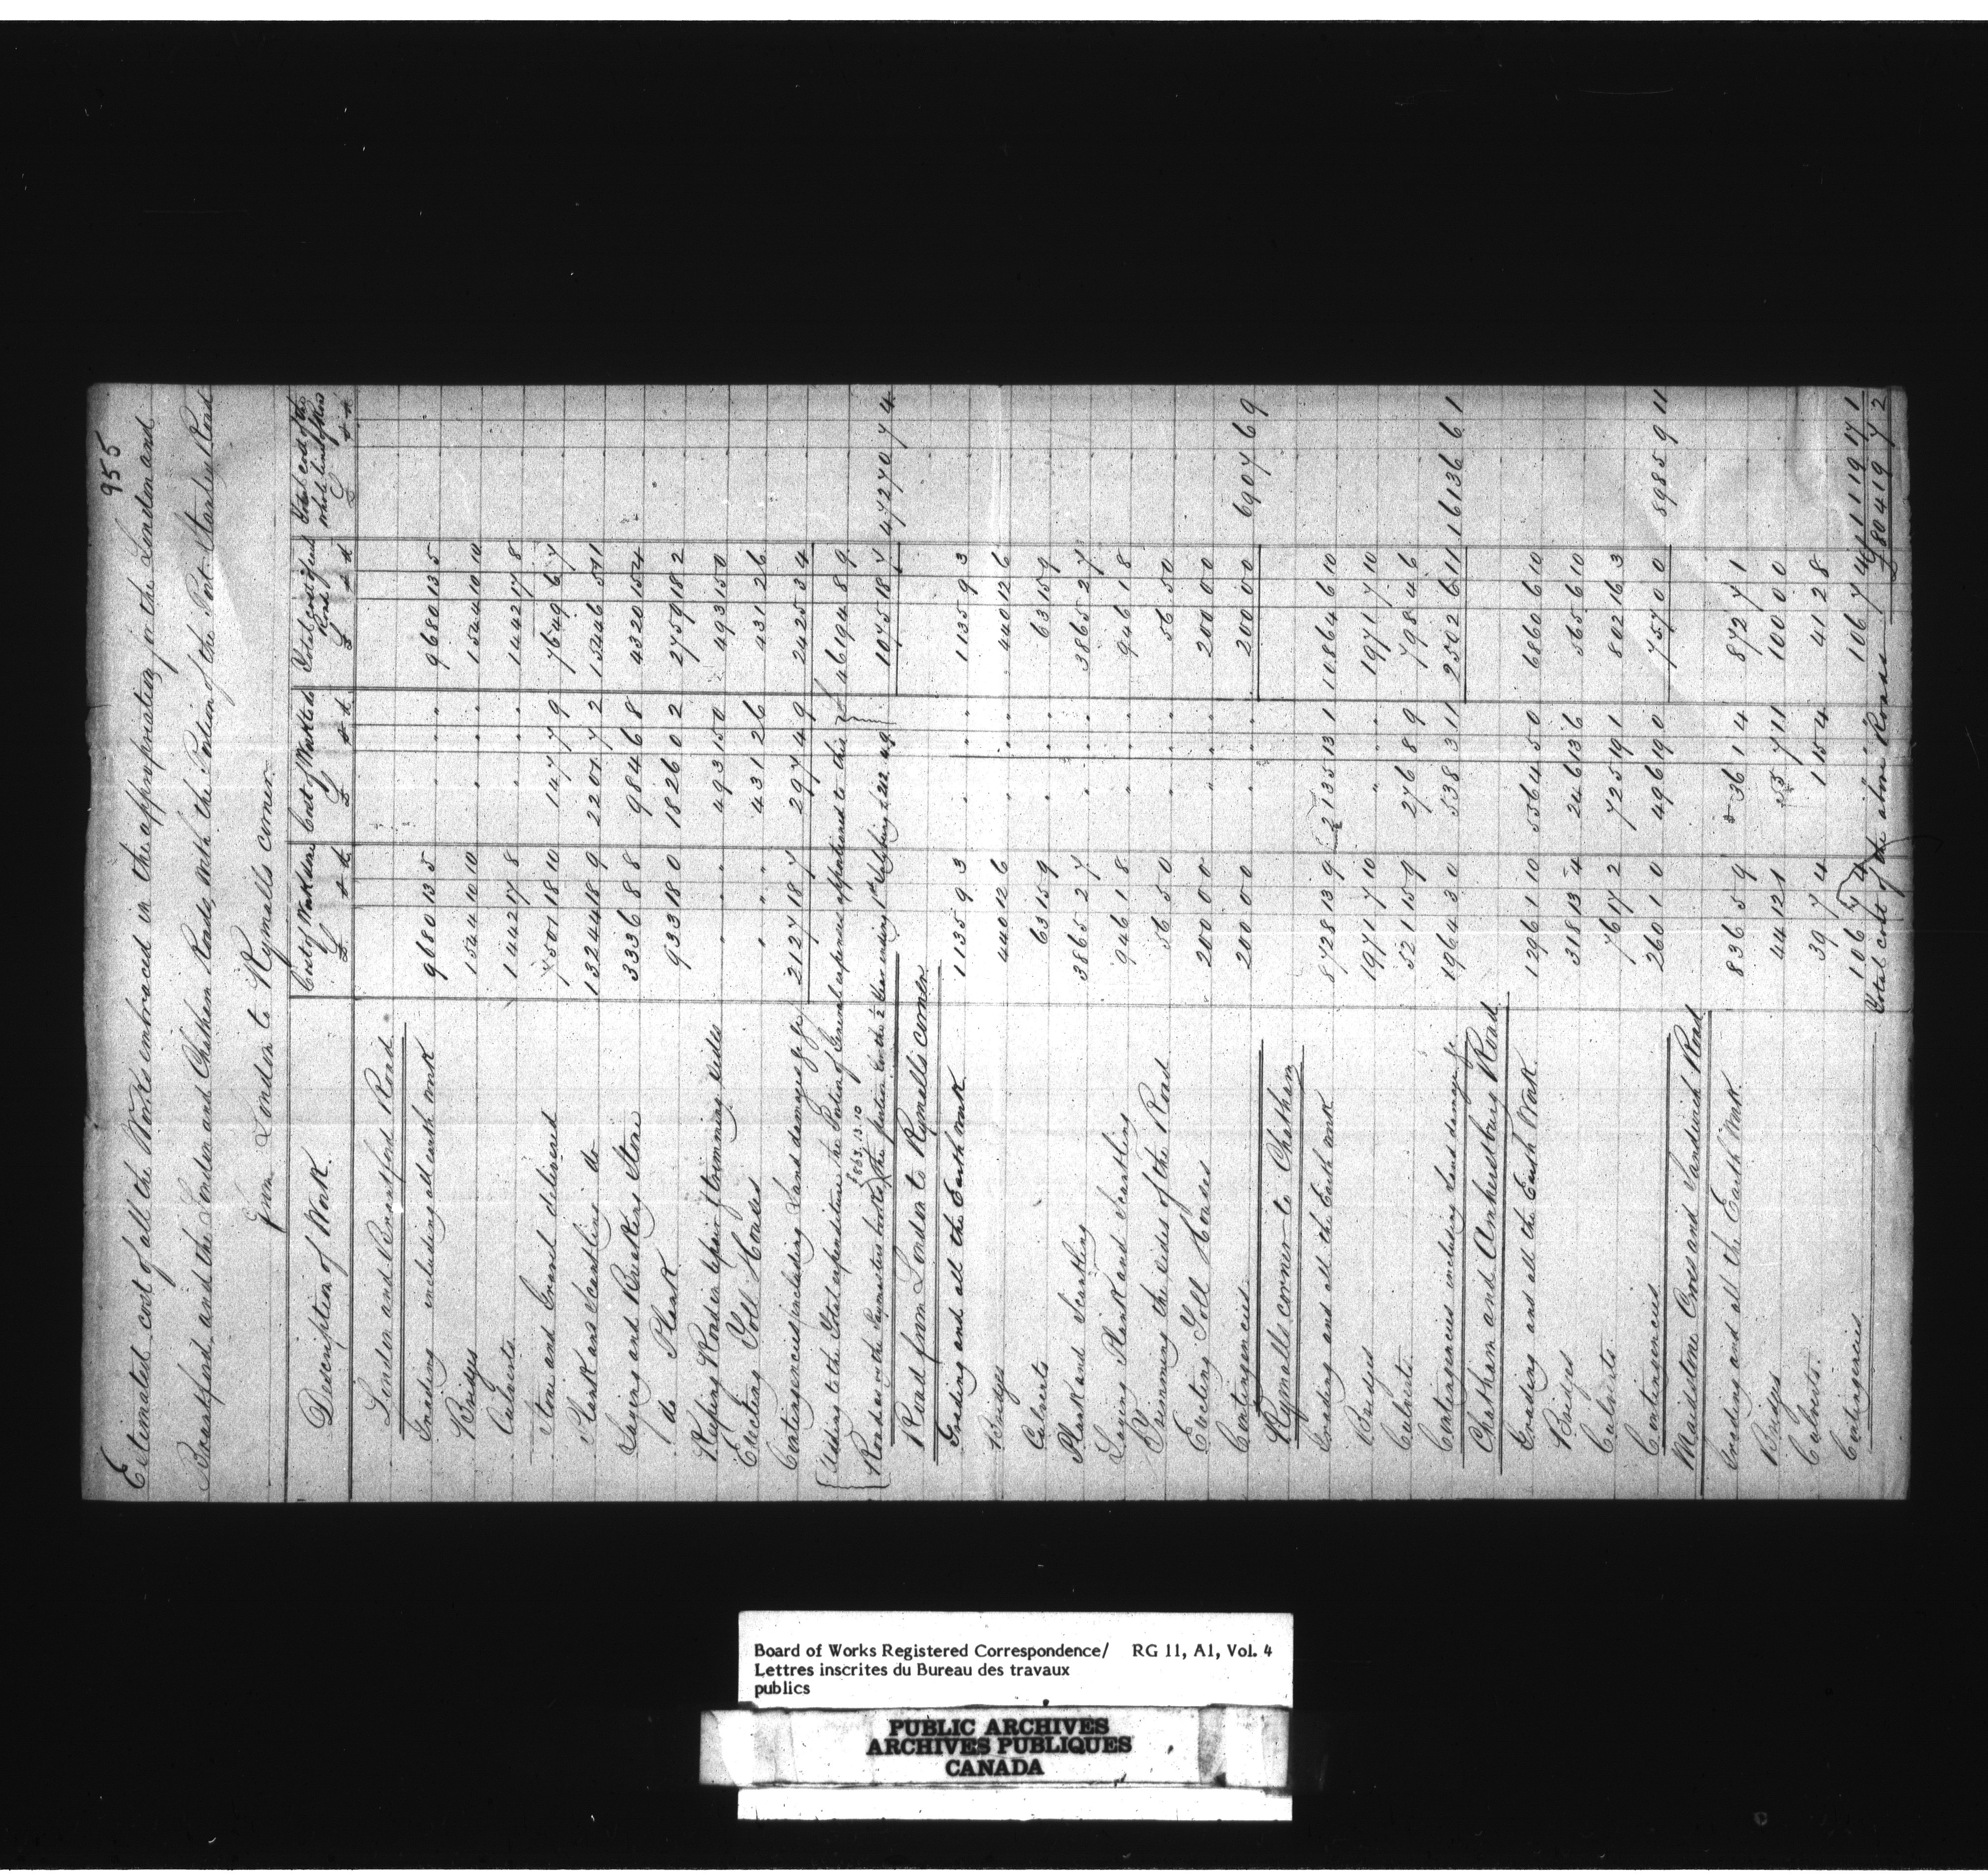 955
Estimated cost of all the Works embraced in the appropriation for the London and
Brantford, and the London and Chatham Roads, with the Portion of the Port Stanley Road
from London to Rymalls corner.
Description of Work. Cost of Work done Cost of Work to do Total cost of each Road Total cost of the whole line of Road
£ s d £ s d £ s d £ s d
London and Brantford Road
Grading including all earth work 9680 13 5 " " " 9680 13 5
Bridges 1544 10 10 " " " 1544 10 10
Culverts 1442 17 8 " " " 1442 17 8
Stone and Gravel delivered 7501 18 10 147 7 9 7649 6 7
Plank and Scantling do 13244 18 9 2201 7 2 15446 5 11
Laying and Breaking Stone 3336 8 8 984 6 8 4320 15 4
do Plank 933 18 0 1826 0 2 2759 18 2
Keeping Road in repair & trimming sides " " " 493 15 0 493 15 0
Erecting Toll Houses " " " 431 2 6 431 2 6
Contingencies including Land damages &c &c 2127 18 7 297 4 9 2425 3 4
Adding to the Total expenditure the Portion of General expences apportioned to this 46194 8 9
£863. 13. 10
Road as in the Paymasters books & the portion for the 2 Year ending 1st £212. 4. 9 1075 18 7 47270 7 4
Road from London to Rymalls corner
Grading and all the Earth work 1135 9 3 " " " 1135 9 3
Bridges 440 12 6 " " " 440 12 6
Culverts 63 15 9 " " " 63 15 9
Plank and Scantling 3865 2 7 " " " 3865 2 7
Laying Plank and Scantling 946 1 8 " " " 946 1 8
Trimming the sides of the Road 56 5 0 " " " 56 5 0
Erecting Toll Houses 200 0 0 " " " 200 0 0
Contingencies 200 0 0 " " " 200 0 0 6907 6 9
Rymalls corner to Chatham
Grading and all the Earth work 8728 13 9 2135 13 1 10864 6 10
Bridges 1971 7 10 " " " 1971 7 10
Culverts 521 15 9 276 8 9 798 4 6
Contingencies including Land damage &c 1964 3 0 538 3 11 2502 6 11 16136 6 1
Chatham and Amherstburg Road
Grading and all the Earth Work. 1296 1 10 5564 5 0 6860 6 10
Bridges 318 13 4 246 13 6 565 6 10
Culverts 76 17 2 725 19 1 802 16 3
Contingencies 260 1 0 496 19 0 757 0 0 8985 9 11
Maidstone Cross and Sandwich Road
Grading and all the Earth Work. 836 5 9 36 1 4 872 7 1
Bridges 44 12 1 55 7 11 100 0 0
Culverts. 39 7 4 1 15 4 41 2 8
Contingencies 106 7 4 106 7 4 1119 17 1
Total cost of the above Roads £80419 7 2
Board of Works Registered Correspondence/ RG 11, A1, Vol. 4
Lettres inscrites du Bureau des travaux
publics
PUBLIC ARCHIVES
ARCHIVES PUBLIQUES
CANADA